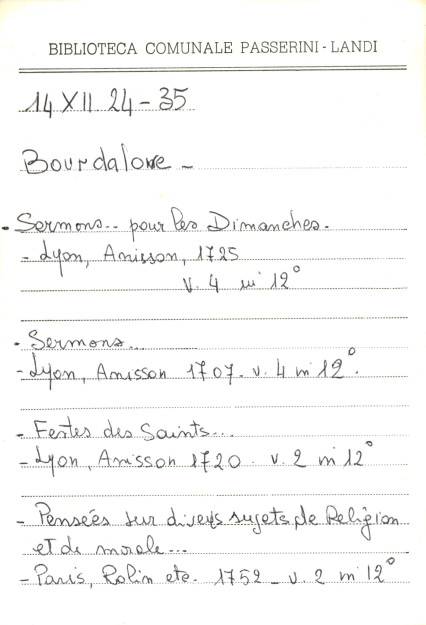 BIBLIOTECA COMUNALE PASSERINI - LANDI
14 XII 24-35
Bourdaloue -
• Sermons... pour les Dimanches.
- Lyon, Anisson, 1725
v. 4 in 12°
• Sermons...
- Lyon, Anisson 1707. v. 4 in 12°.
- Festes des Saints...
- Lyon, Anisson 1720. v. 2 in 12°
- Pensées sur divers sujets de Religion
et de morale...
- Paris, Rolin etc. 1752 - v. 2 in 12°